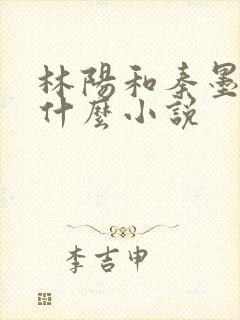 林陽和秦墨
什麼小說
李吉申